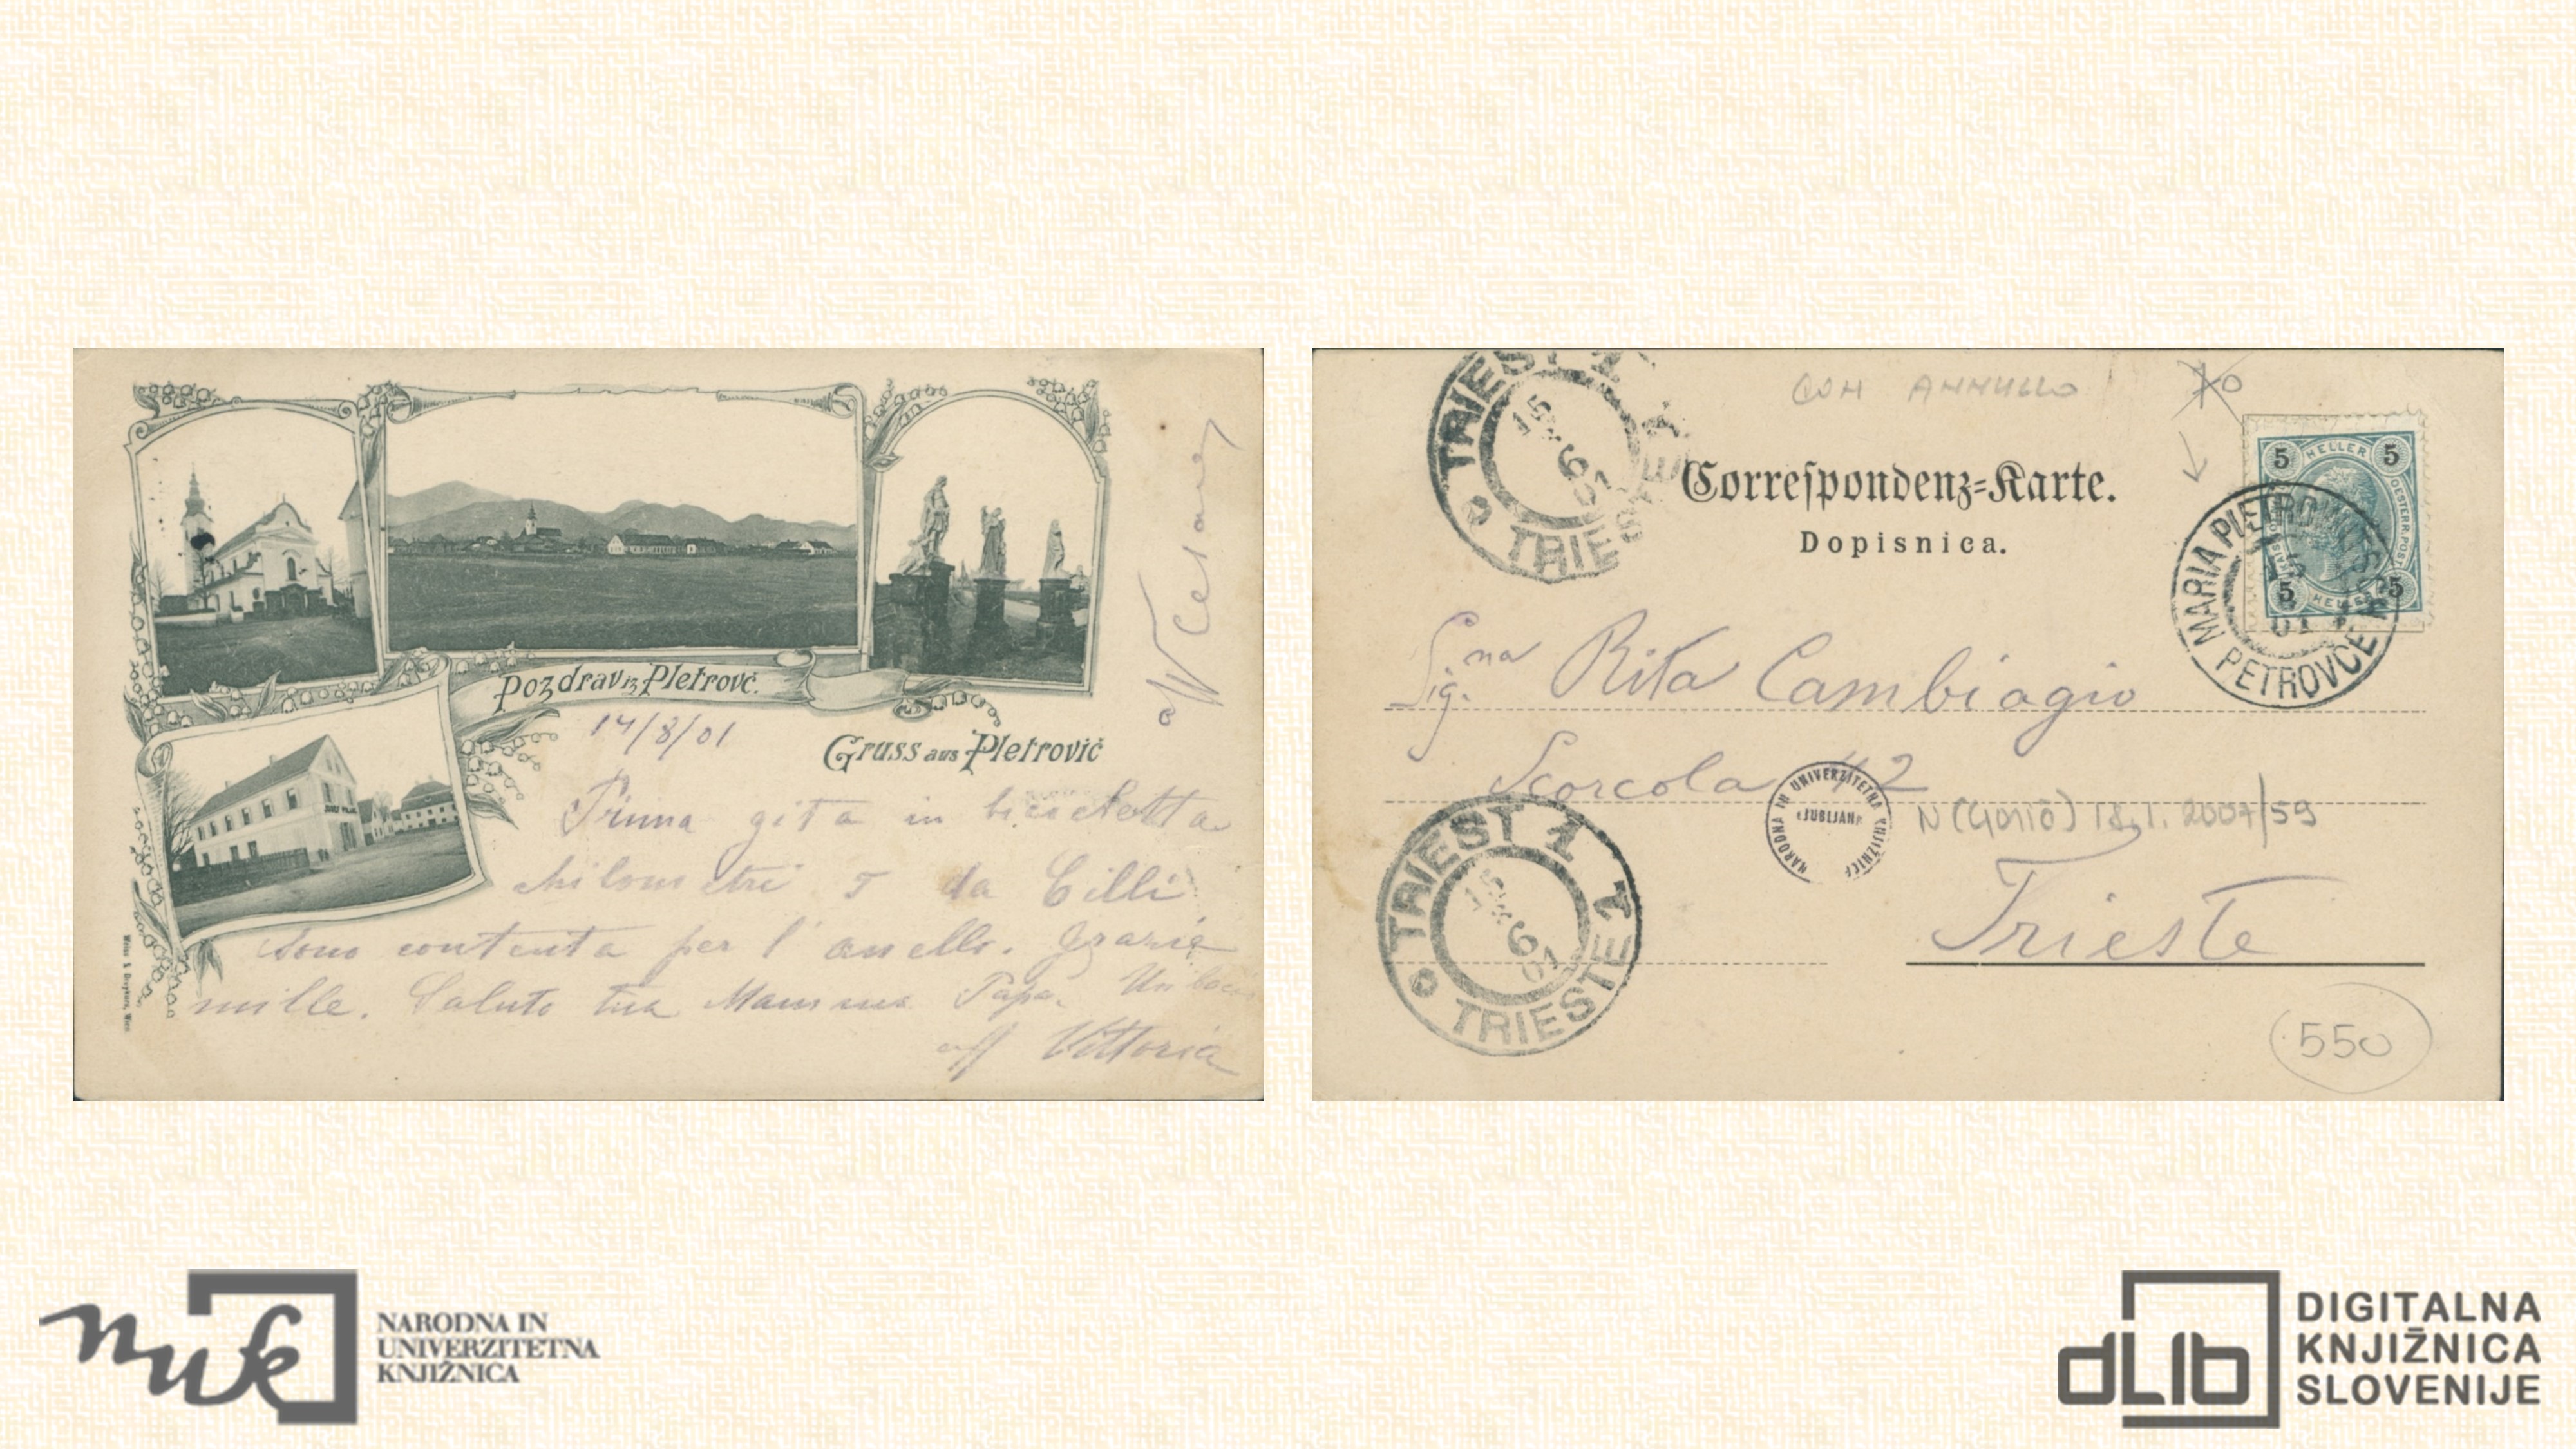 Pozdrav iz Pletrovč.
14/8/01
Gruss aus Pletrovič
Prima gita in bicicletta
chilometri 5 da Cilli
sono contenta per l'anello. Grazie
mille. Saluto tua Mamma Papa. Un bacio
aff Vittoria
Cesare
TRIEST 1
15
6
01
TRIESTE 1
COM ANNULLO
Correspondenz-Karte.
Dopisnica.
5 HELLER 5
OESTERR. POST
5 HELLER 5
MARIA PLETROWITSCH
01
PETROVČE
Sig.na Rita Cambiagio
Scorcola 42
NARODNA IN UNIVERZITETNA KNJIŽNICA
LJUBLJANA
2007/59
Trieste
TRIEST 1
15
6
01
TRIESTE 1
550
nuk
NARODNA IN
UNIVERZITETNA
KNJIŽNICA
dLib
DIGITALNA
KNJIŽNICA
SLOVENIJE